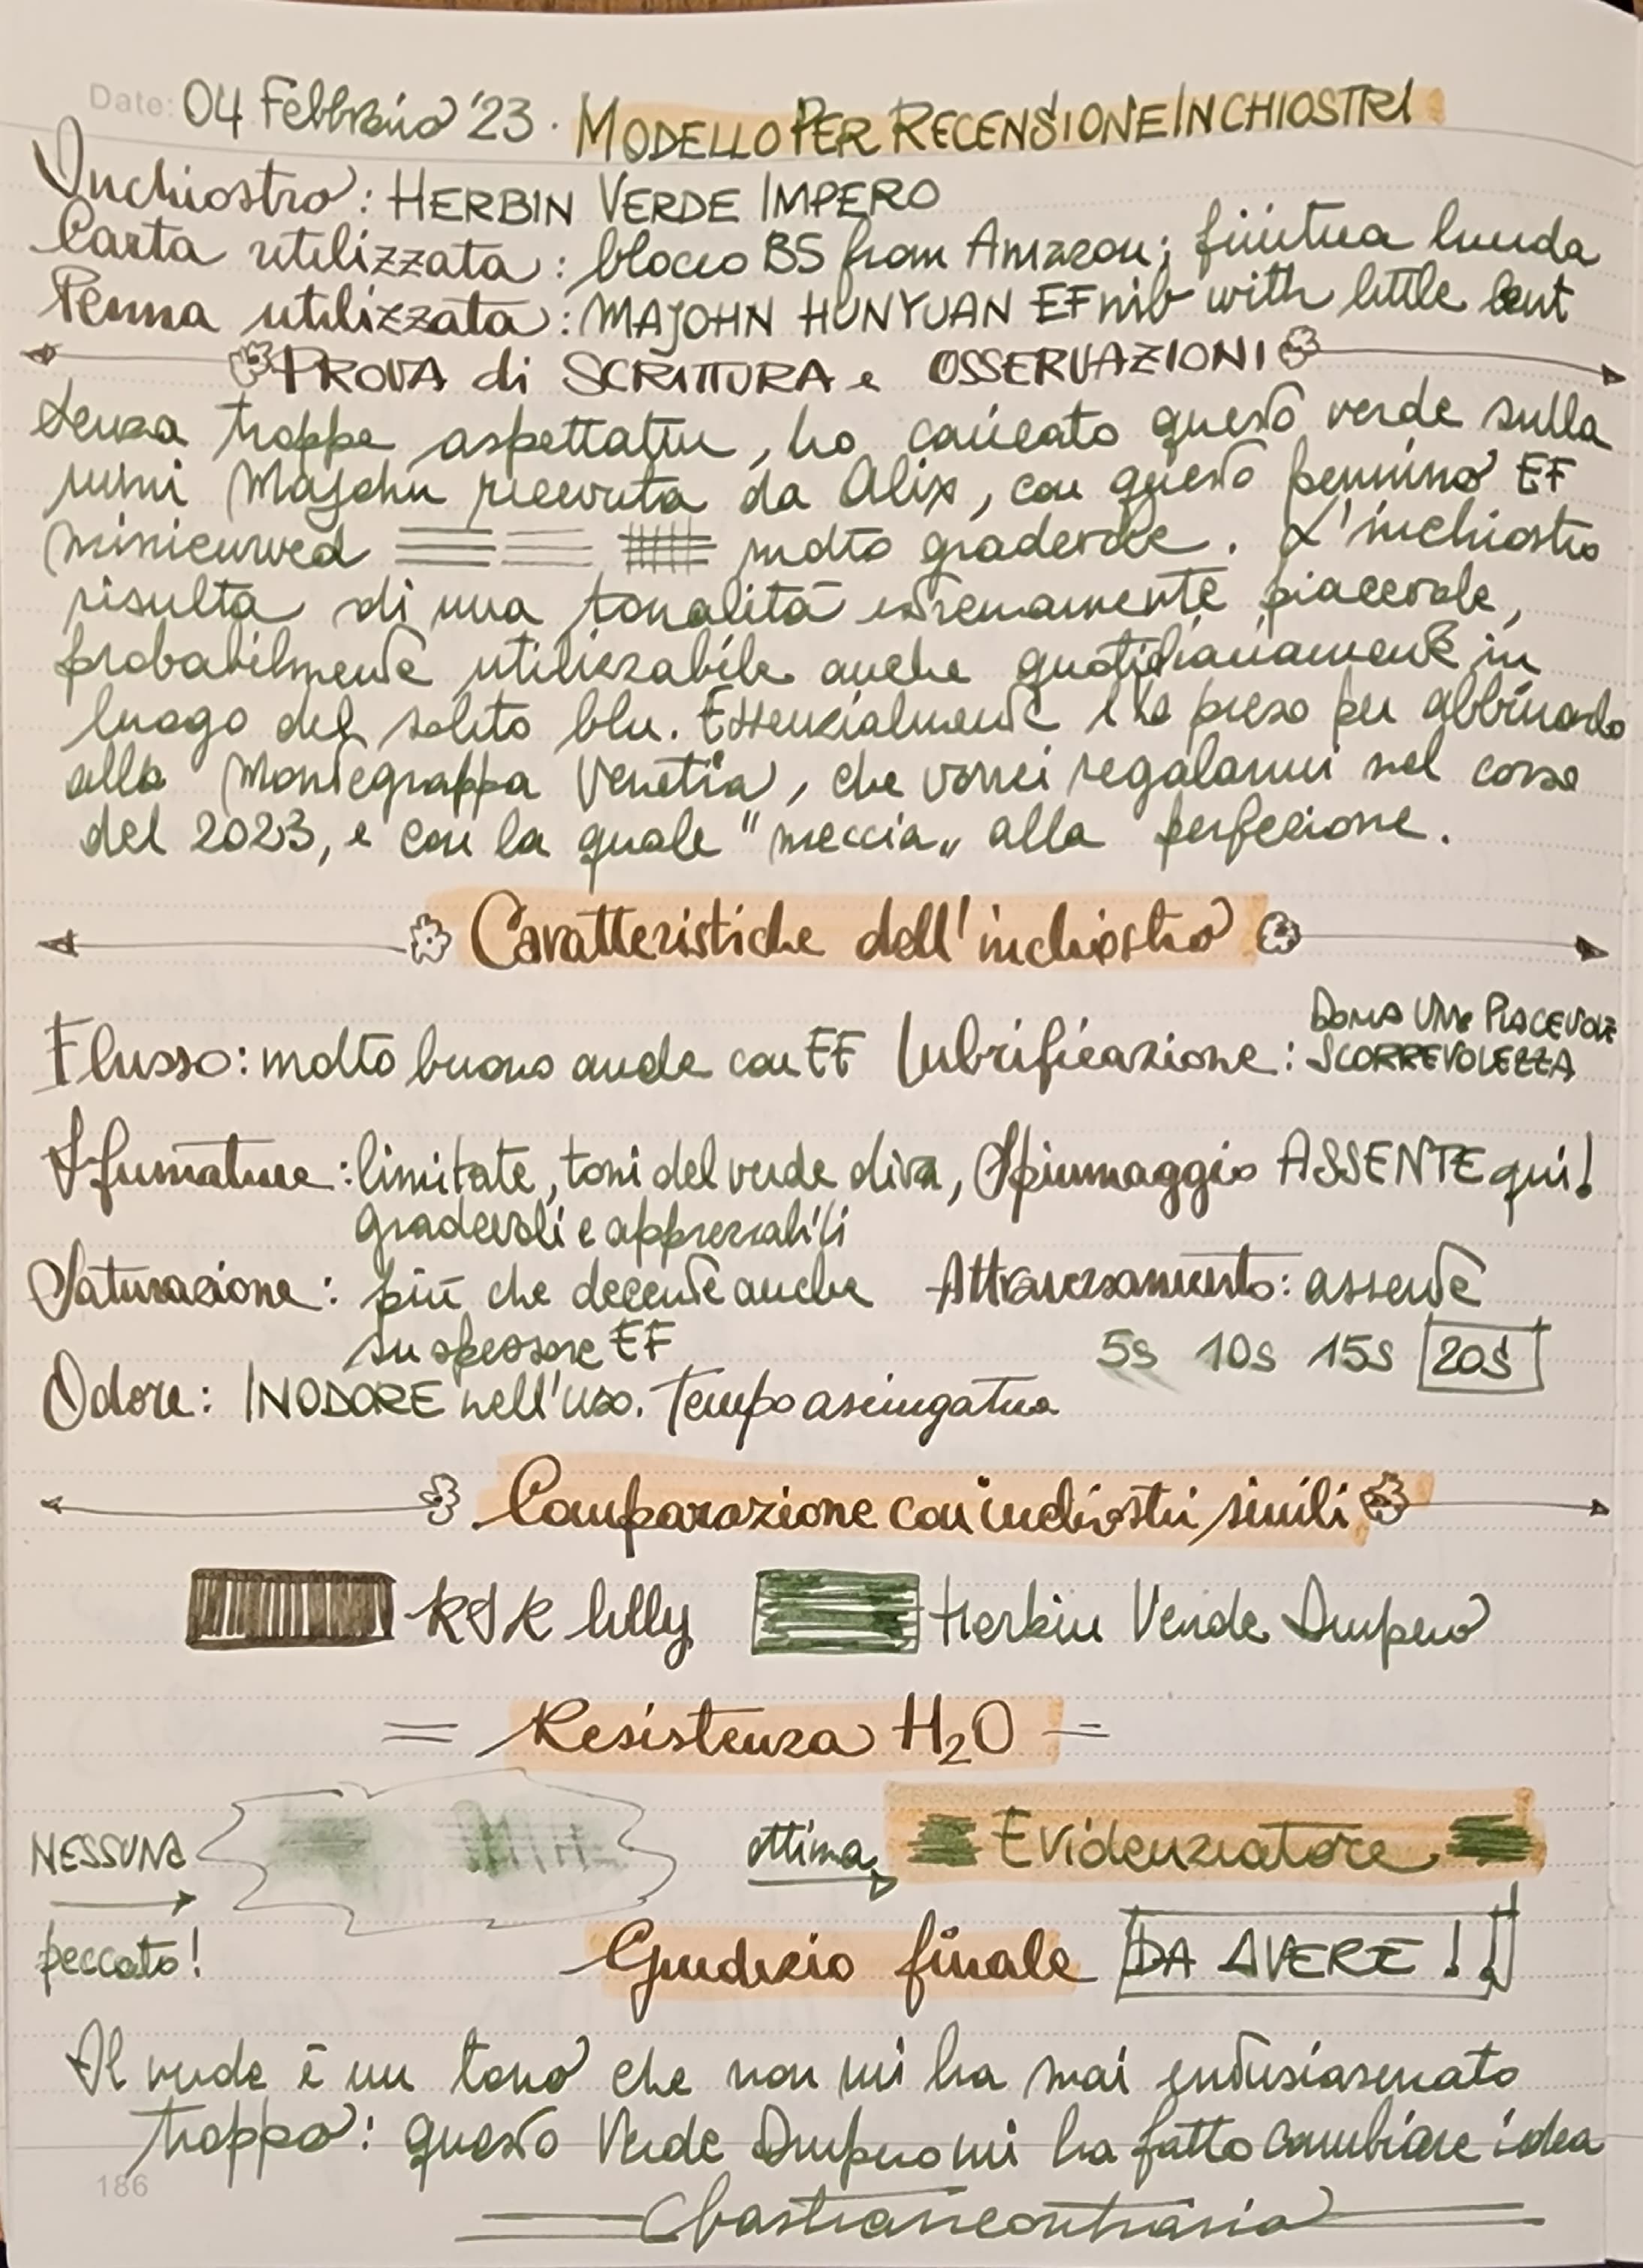 Date: 04 Febbraio '23 · MODELLO PER RECENSIONE INCHIOSTRI
Inchiostro: HERBIN VERDE IMPERO
Carta utilizzata: blocco B5 from Amazon; finitura lucida
Penna utilizzata: MAJOHN HUNYUAN EF nib with little bent
PROVA di SCRITTURA e OSSERVAZIONI
Senza troppe aspettative, ho caricato questo verde sulla
mini Majohn ricevuta da Alix, con questo pennino EF
minicurved molto gradevole. L'inchiostro
risulta di una tonalità estremamente piacevole,
probabilmente utilizzabile anche quotidianamente in
luogo del solito blu. Essenzialmente l'ho preso per abbinarlo
alla Montegrappa Venetia, che vorrei regalarmi nel corso
del 2023, e con la quale "meccia" alla perfezione.
Caratteristiche dell'inchiostro
Flusso: molto buono anche con EF Lubrificazione: DONA UNA PIACEVOLE
SCORREVOLEZZA
Sfumature: limitate, toni del verde oliva, Spiumaggio ASSENTE qui!
gradevoli e apprezzabili
Saturazione: più che decente anche Attraversamento: assente
su spessore EF
5s 10s 15s 20s
Odore: INODORE nell'uso. Tempo asciugatura
Comparazione con inchiostri simili
KSK lilly Herbin Verde Impero
= Resistenza H₂O =
NESSUNA ottima Evidenziatore
peccato! Giudizio finale DA AVERE!!
Il verde è un tono che non mi ha mai entusiasmato
troppo: questo Verde Impero mi ha fatto cambiare idea
186
bastiancontrario